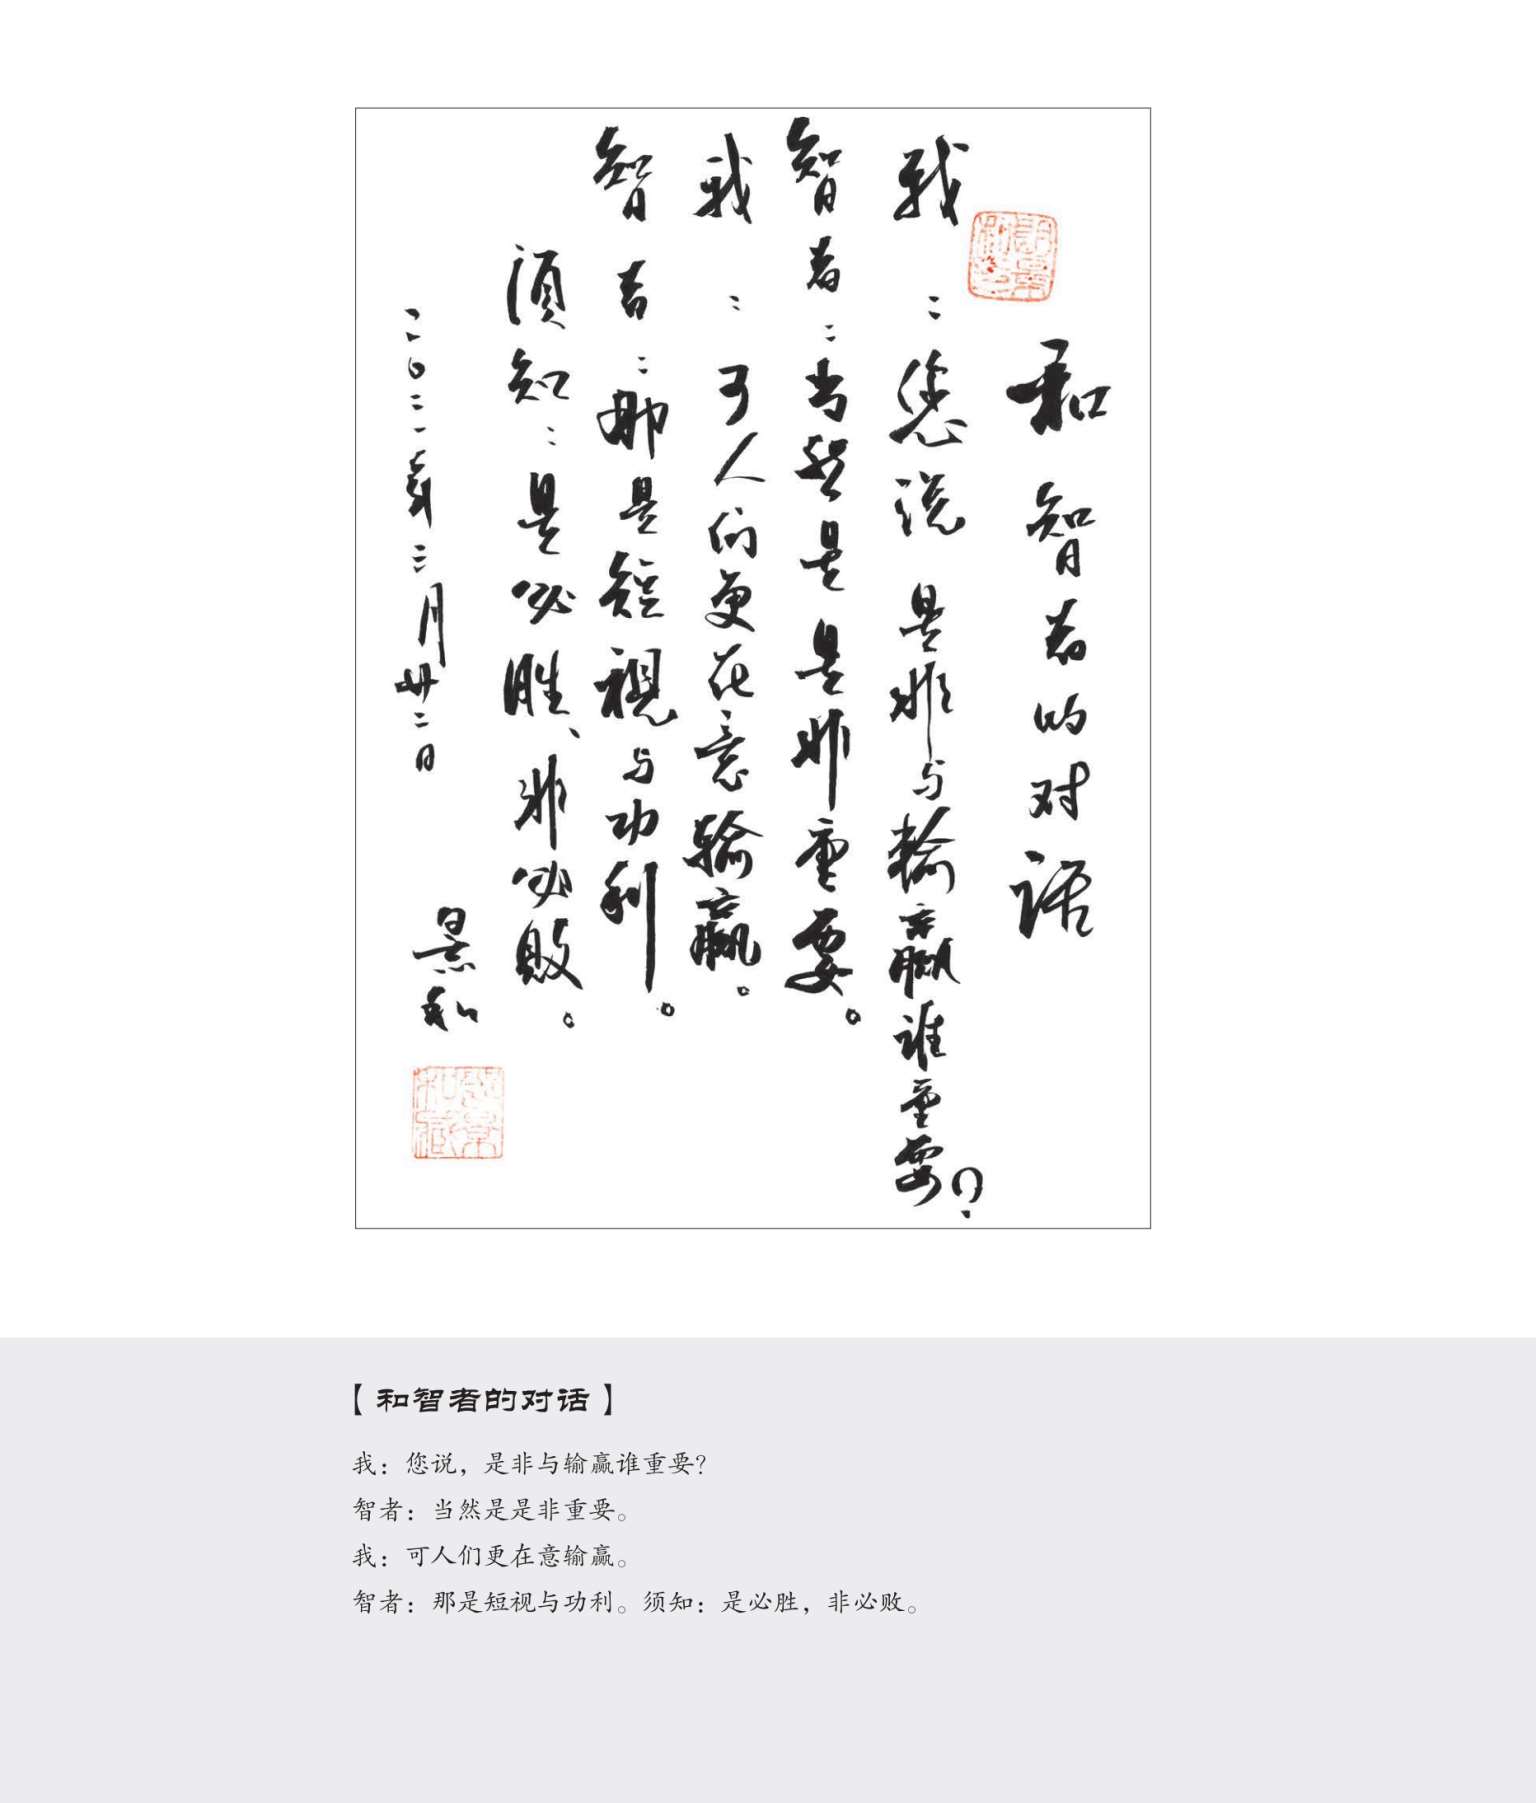 和智者的对话
我：您说是非与输赢谁重要？
智者：当然是是非重要。
我：可人们更在意输赢。
智者：那是短视与功利。
须知：是必胜、非必败。
二〇二一年三月廿二日
景和
【和智者的对话】
我：您说，是非与输赢谁重要？
智者：当然是是非重要。
我：可人们更在意输赢。
智者：那是短视与功利。须知：是必胜，非必败。